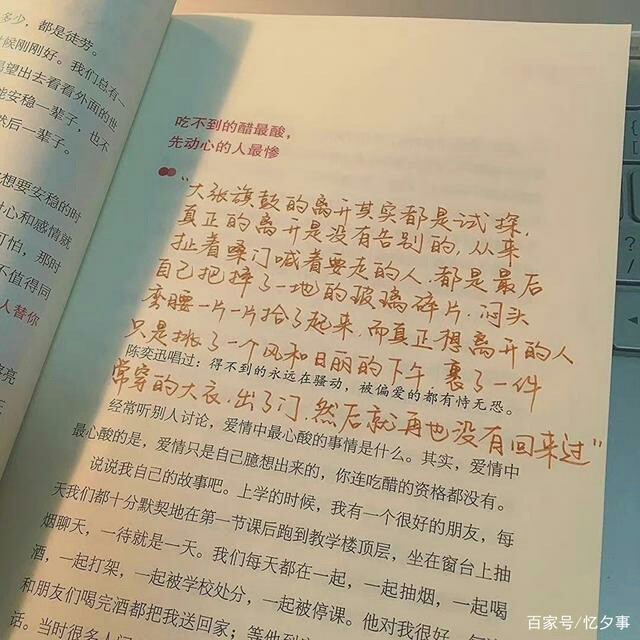 多少，都是徒劳。
时候刚刚好。我们总有一
渴望出去看看外面的世
能安稳一辈子，也不
然后一辈子。
想要安稳的时
对心和感情就
可怕，那时
不值得同
人替你
吃不到的醋最酸，
先动心的人最惨
“大张旗鼓的离开其实都是试探，
真正的离开是没有告别的，从来
扯着嗓门喊着要走的人，都是最后
自己把摔了一地的玻璃碎片，闷头
弯腰一片一片拾了起来，而真正想离开的人
只是挑了一个风和日丽的下午，裹了一件
陈奕迅唱过：得不到的永远在骚动，被偏爱的都有恃无恐。
常穿的大衣，出了门，然后就再也没有回来过”
经常听别人讨论，爱情中最心酸的事情是什么。其实，爱情中
最心酸的是，爱情只是自己臆想出来的，你连吃醋的资格都没有。
说说我自己的故事吧。上学的时候，我有一个很好的朋友，每
天我们都十分默契地在第一节课后跑到教学楼顶层，坐在窗台上抽
烟聊天，一待就是一天。我们每天都在一起，一起抽烟，一起喝
酒，一起打架，一起被学校处分，一起被停课。他对我很好，每
和朋友们喝完酒都把我送回家；等他到
话。当时很多人
百家号/忆夕事